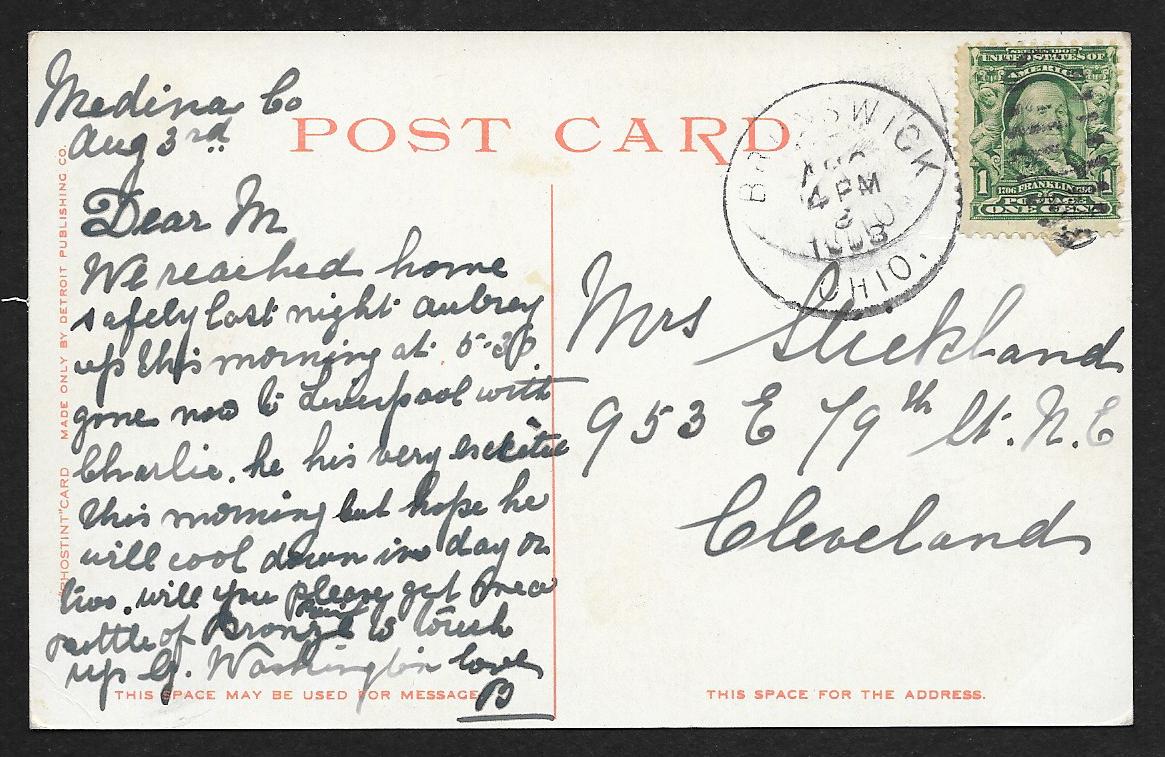 Medina Co
Aug 3rd
Dear M
We reached home
safely last night Aubrey
up this morning at 5-30
gone now to Liverpool with
Charlie. he his very
this morning but hope he
will cool down in a day or
two. will you please get me a
bottle of Bronze Paint to touch
up G. Washington love
B
POST CARD
"PHOSTINT" CARD MADE ONLY BY DETROIT PUBLISHING CO.
THIS SPACE MAY BE USED FOR MESSAGE
BRUNSWICK
AUG
4 PM
3
1908
OHIO.
SERIES 1902
UNITED STATES OF
AMERICA
1706 FRANKLIN 1790
1 1
POSTAGE
ONE CENT
Mrs Stickland
953 E 79th St. N.E
Cleveland
THIS SPACE FOR THE ADDRESS.